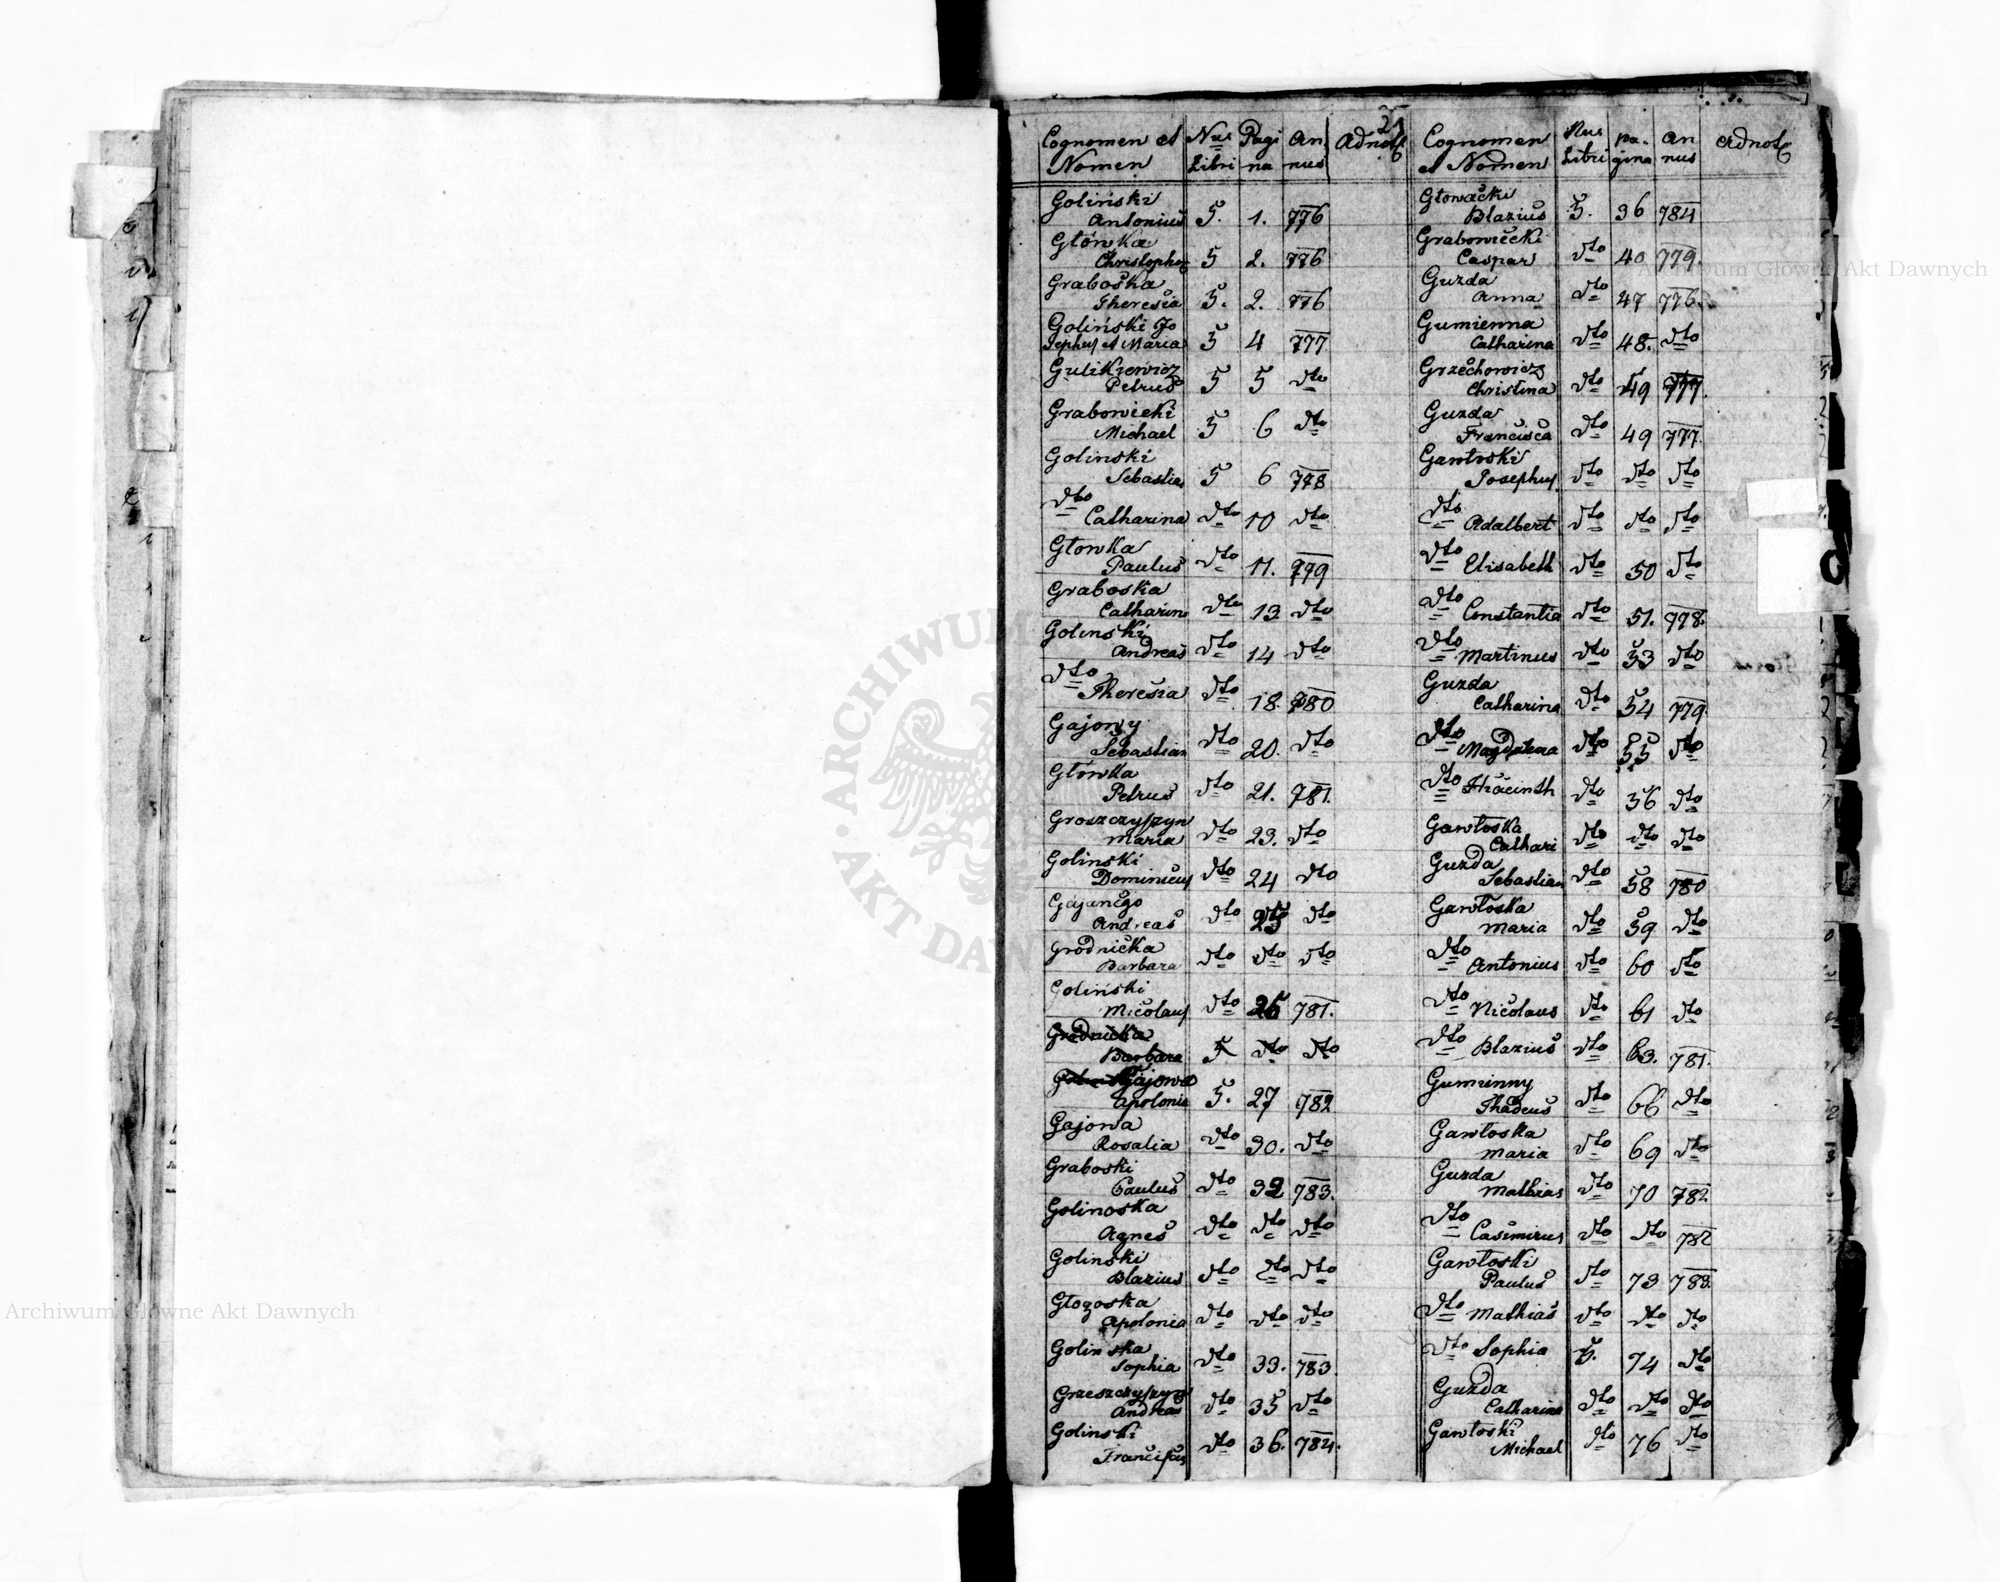 21
Cognomen et Nus Pagi An Adnot
Nomen Libri na nus
Goliński
Antonius 5. 1. 776
Główka
Christophor 5 2. 776
Graboska
Theresia 5. 2. 776
Goliński Jo
sephus et Maria 5 4 777
Gulikiewicz
Petrus 5 5 dto
Grabowiecki
Michael 5 6 dto
Golinski
Sebastian 5 6 778
dto
Catharina dto 10 dto
Głowka
Paulus dto 11. 779
Graboska
Catharina dto 13 dto
Golinski
Andreas dto 14 dto
dto
Theresia dto 18. 780
Gajowy
Sebastian dto 20. dto
Główka
Petrus dto 21. 781.
Groszczyszyn
Maria dto 23. dto
Golinski
Dominicus dto 24 dto
Andreas dto 25 dto
Grodnicka
Barbara dto dto dto
Goliński
Nicolaus dto 26 781.
Grodnicka
Barbara 5 dto dto
Gajowa
Apolonia 5. 27 782
Gajowa
Rosalia dto 30. dto
Graboski
Paulus dto 32 783.
Golinoska
Agnes dto dto dto
Golinski
Blazius dto dto dto
Głogoska
Apolonia dto dto dto
Golinska
Sophia dto 33. 783
Grzeszczyszyn
Andreas dto 35 dto
Golinski
Franciscus dto 36. 784.
Cognomen Nus pa- an Adnot
et Nomen Libri gina nus
Głowacki
Blazius 5. 36 784
Grabowiecki
Caspar dto 40 779.
Guzda
Anna dto 47 776
Gumienna
Catharina dto 48. dto
Grzechowicz
Christina dto 49 777.
Guzda
Francisca dto 49 777.
Gawłoski
Josephus dto dto dto
dto Adalbert dto dto dto
dto Elisabeth dto 50 dto
dto Constantia dto 51. 778.
dto Martinus dto 53 dto
Guzda
Catharina dto 54 779.
dto Magdalena dto 55 dto
dto Hiacinth dto 56 dto
Gawłoska
Cathari dto dto dto
Guzda
Sebastian dto 58 780
Gawłoska
Maria dto 59 dto
dto Antonius dto 60 dto
dto Nicolaus dto 61 dto
dto Blazius dto 63. 781.
Gumienny
Thadeus dto 66 dto
Gawłoska
Maria dto 69 dto
Guzda
Mathias dto 70 782
dto Casimirus dto dto 782
Gawłoski
Paulus dto 73 783.
dto Mathias dto dto dto
dto Sophia 5. 74 dto
Guzda
Catharina dto dto dto
Gawłoski
Michael dto 76 dto
G
Archiwum Główne Akt Dawnych
Archiwum Główne Akt Dawnych
ARCHIWUM
AKT DAW